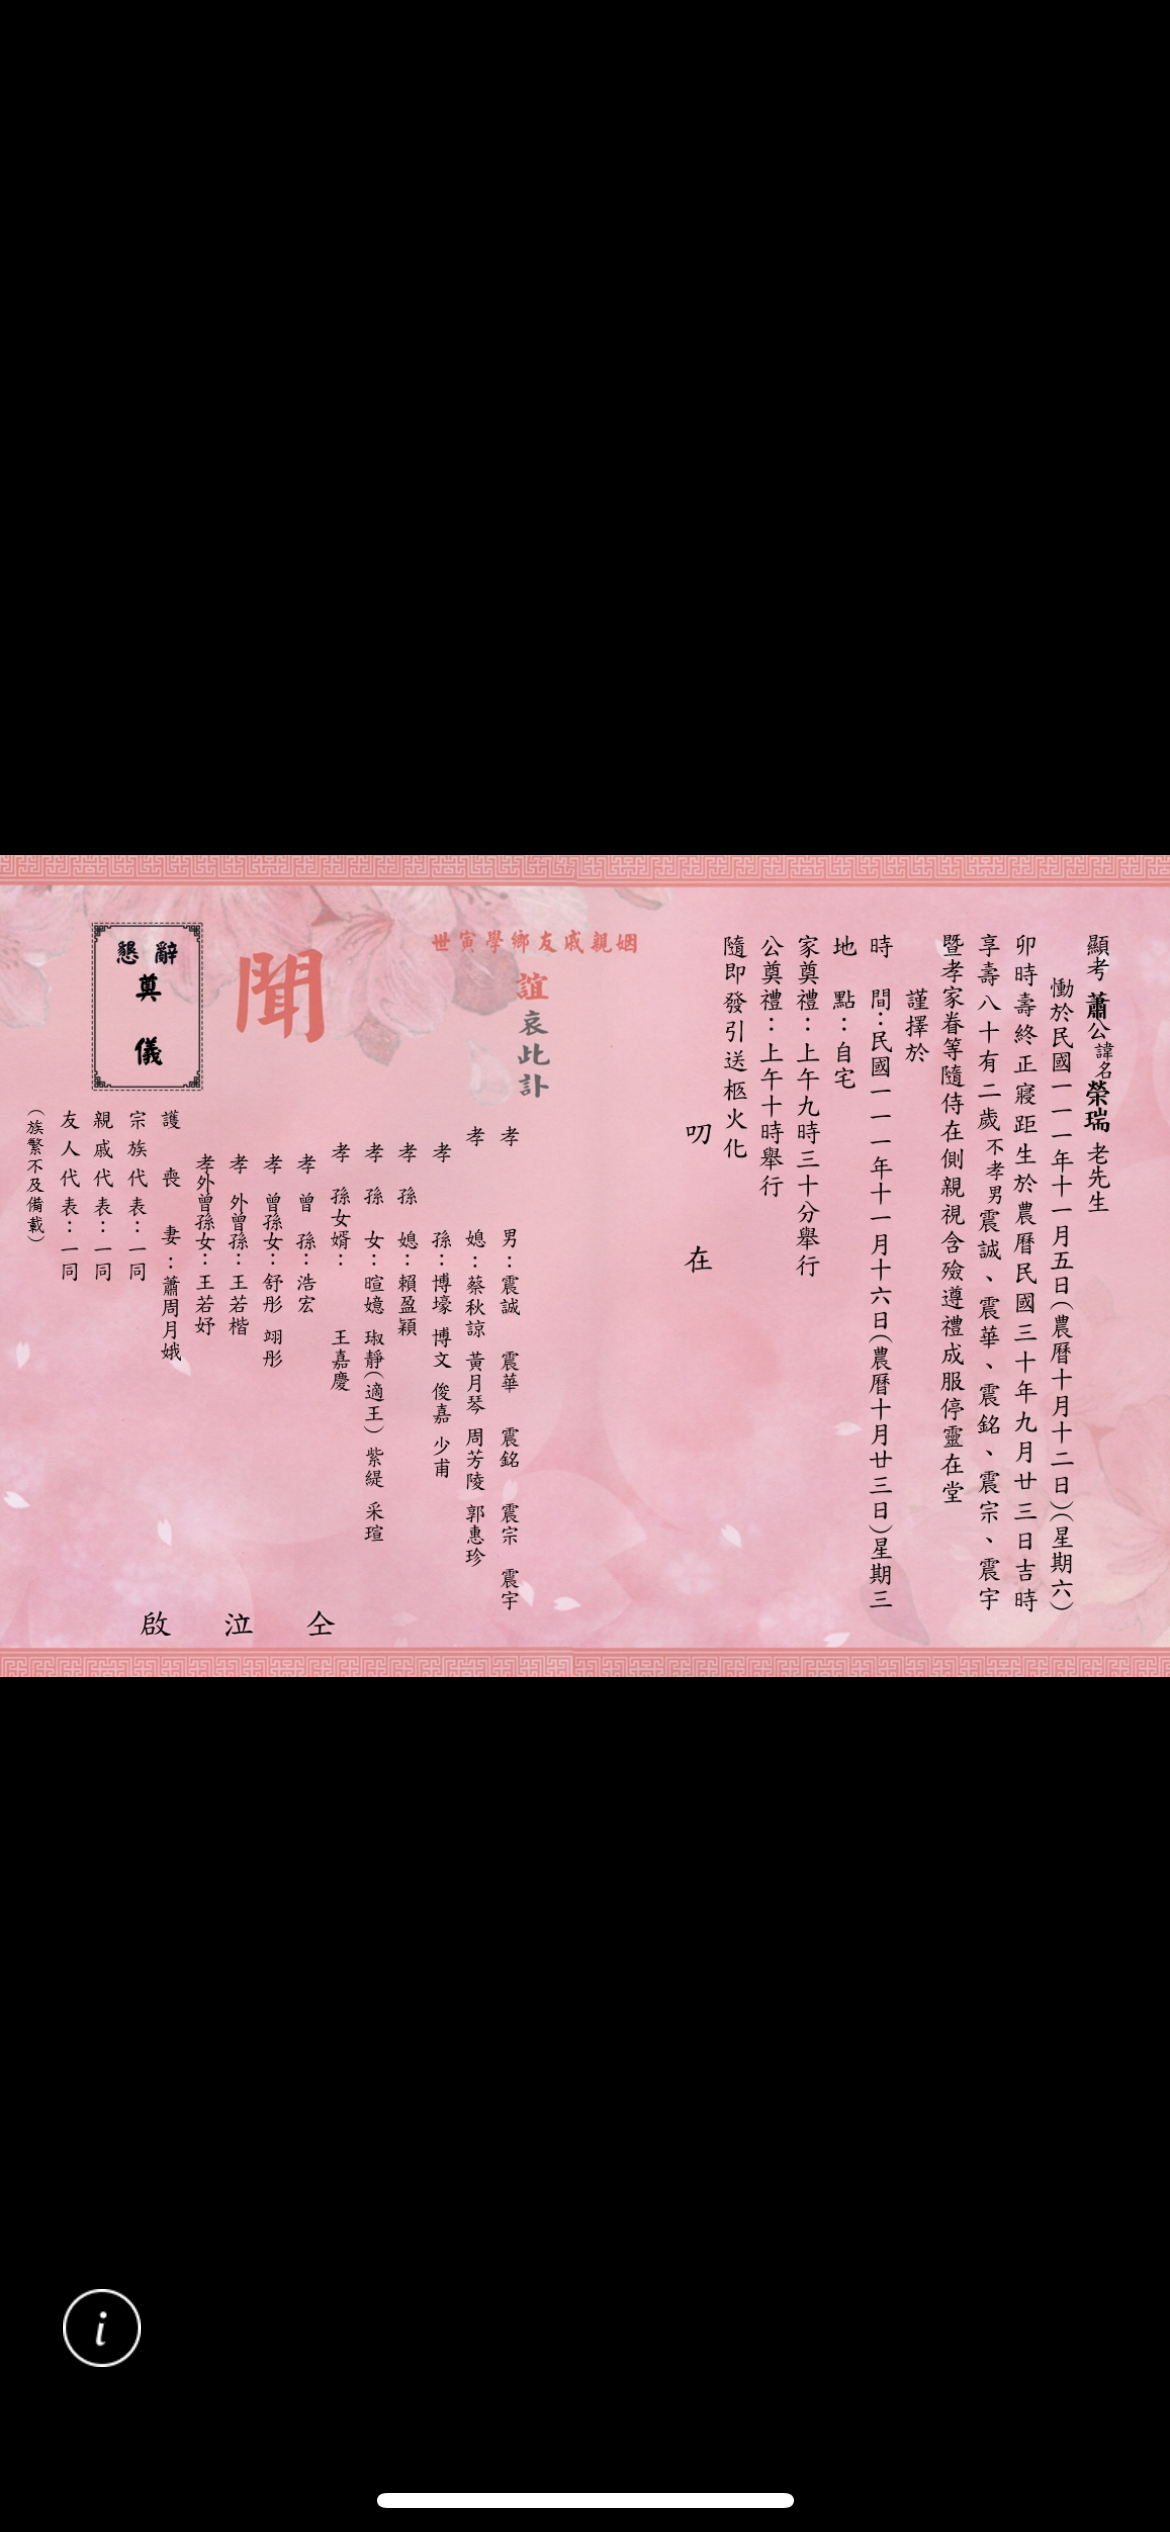 顯考蕭公諱名榮瑞老先生
慟於民國一一一年十一月五日(農曆十月十二日)(星期六)
卯時壽終正寢距生於農曆民國三十年九月廿三日吉時
享壽八十有二歲不孝男震誠、震華、震銘、震宗、震宇
暨孝家眷等隨侍在側親視含殮遵禮成服停靈在堂
謹擇於
時間:民國一一一年十一月十六日(農曆十月廿三日)星期三
地點:自宅
家奠禮:上午九時三十分舉行
公奠禮:上午十時舉行
隨即發引送柩火化
叨在
姻親戚友鄉學寅世
誼哀此訃
聞
孝男:震誠 震華 震銘 震宗 震宇
孝媳:蔡秋諒 黃月琴 周芳陵 郭惠珍
孝孫:博壕 博文 俊嘉 少甫
孝孫媳:賴盈穎
孝孫女:暄嬑 琡靜(適王) 紫緹 采瑄
孝孫女婿:王嘉慶
孝曾孫:浩宏
孝曾孫女:舒彤 翊彤
孝外曾孫:王若楷
孝外曾孫女:王若妤
護喪妻:蕭周月娥
宗族代表:一同
親戚代表:一同
友人代表:一同
(族繁不及備載)
仝泣啟
懇辭
奠儀
i